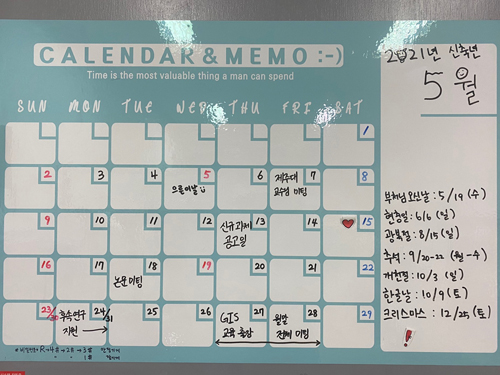 CALENDAR & MEMO :-)
Time is the most valuable thing a man can spend
2021년 신축년
5월
SUN MON TUE WED THU FRI SAT
1
2 3 4 5 6 7 8
제주대
교수님 미팅
9 10 11 12 13 14 15
신규과제
공고일
16 17 18 19 20 21 22
논문미팅
23/30 24/31 25 26 27 28 29
후속연구
지원
GIS
교육 출장
월말
전체 미팅
부처님오신날 : 5/19 (수)
현충일 : 6/6 (일)
광복절 : 8/15 (일)
추석 : 9/20-22 (월-수)
개천절 : 10/3 (일)
한글날 : 10/9 (토)
크리스마스 : 12/25 (토)
!